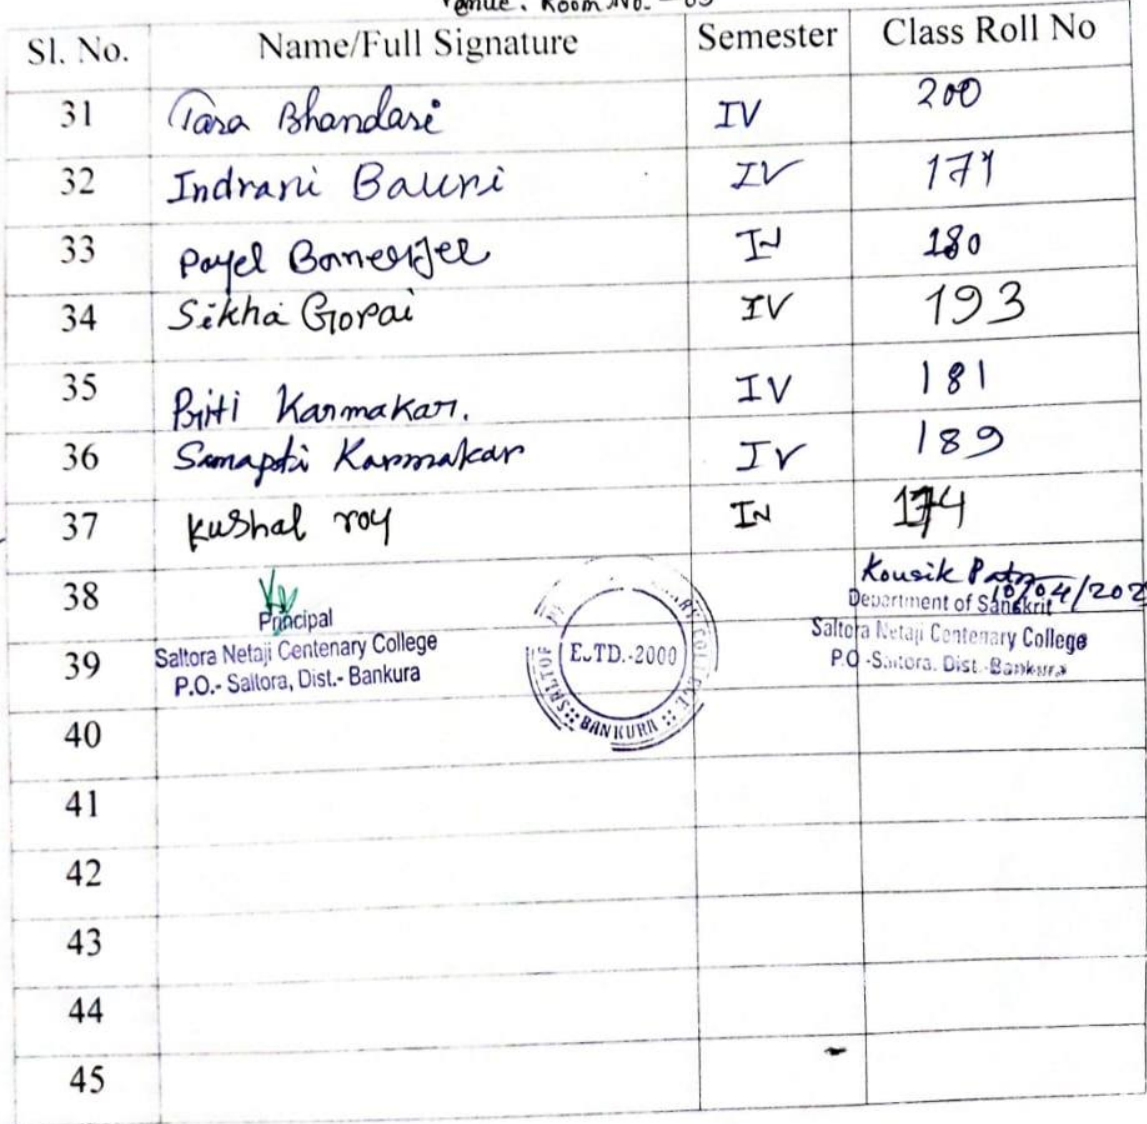 Venue: Room No. - 03
Sl. No. Name/Full Signature Semester Class Roll No
31 Tara Bhandari IV 200
32 Indrani Bauri IV 171
33 Payel Banerjee IV 180
34 Sikha Gorai IV 193
35 Priti Karmakar. IV 181
36 Samapti Karmakar IV 189
37 Kushal roy IV 174
38
Principal
Saltora Netaji Centenary College
P.O.- Saltora, Dist.- Bankura
ESTD.-2000
BANKURA
Kousik Patra
10/04/202
Department of Sanskrit
Saltora Netaji Centenary College
P.O.-Saltora, Dist.-Bankura
39
40
41
42
43
44
45